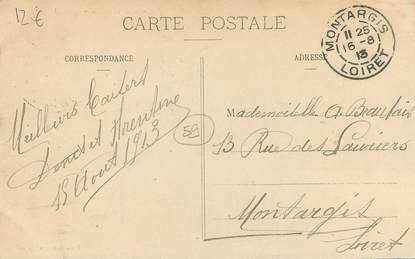 12 €
CARTE POSTALE
CORRESPONDANCE
ADRESSE
MONTARGIS
11 25
16 - 8
13
LOIRET
Meilleurs Baisers
Août 1913
52
Mademoiselle G. Beaufais
13 Rue des Lauriers
Montargis
Loiret